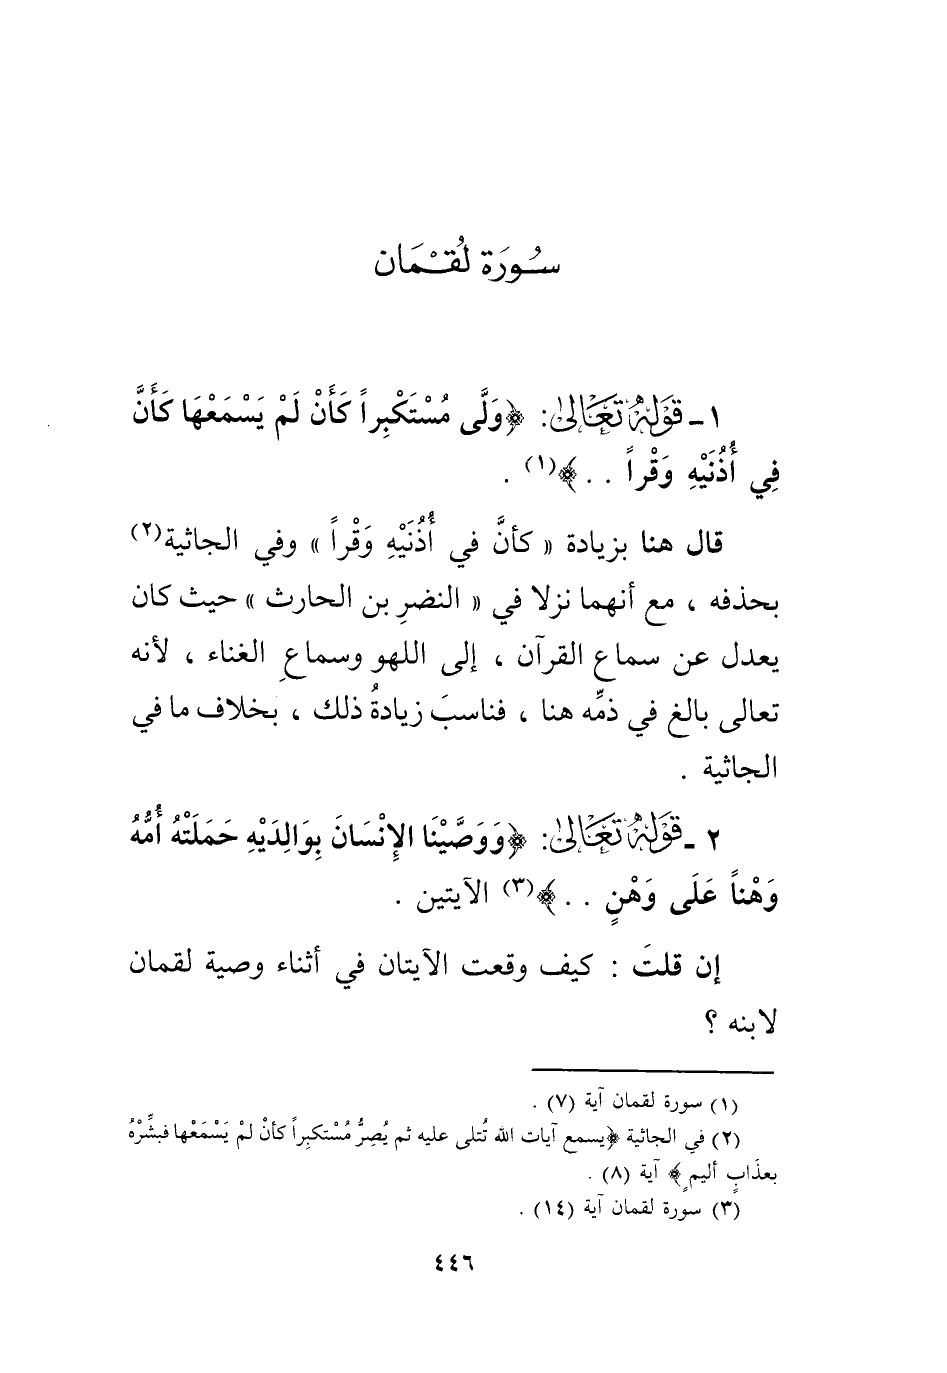 سُورَة لُقْمَان
١ - قَوْلُهُ تَعَالَىٰ: ﴿وَلَّى مُسْتَكْبِراً كَأَنْ لَمْ يَسْمَعْهَا كَأَنَّ
فِي أُذُنَيْهِ وَقْراً . . ﴾(١) .
قال هنا بزيادة « كأنَّ في أُذُنَيْهِ وَقْراً » وفي الجاثية(٢)
بحذفه ، مع أنهما نزلا في « النضرِ بن الحارث » حيث كان
يعدل عن سماع القرآن ، إلى اللهو وسماعِ الغناء ، لأنه
تعالى بالغ في ذمِّه هنا ، فناسبَ زيادةُ ذلك ، بخلاف ما في
الجاثية .
٢ - قَوْلُهُ تَعَالَىٰ: ﴿وَوَصَّيْنَا الإِنْسَانَ بِوَالِدَيْهِ حَمَلَتْهُ أُمُّهُ
وَهْناً عَلَى وَهْنٍ . . ﴾(٣) الآيتين .
إن قلتَ : كيف وقعت الآيتان في أثناء وصية لقمان
لابنه ؟
(١) سورة لقمان آية (٧) .
(٢) في الجاثية ﴿يسمع آيات الله تُتلى عليه ثم يُصِرُّ مُسْتكبِراً كأنْ لمْ يَسْمَعْها فبشِّرْهُ
بعذَابٍ أليمٍ﴾ آية (٨) .
(٣) سورة لقمان آية (١٤) .
٤٤٦